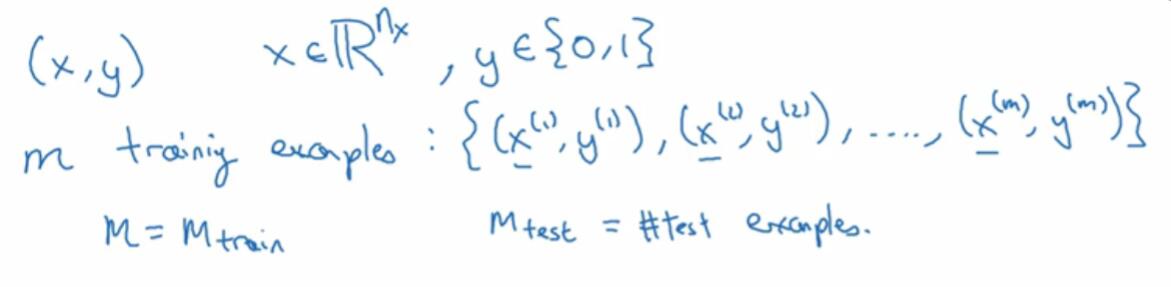 (x,y) x ∈ ℝ^{n_x}, y ∈ {0,1}
m training examples : {(x^{(1)}, y^{(1)}), (x^{(2)}, y^{(2)}), ...., (x^{(m)}, y^{(m)})}
M = M_{train} M_{test} = #test examples.